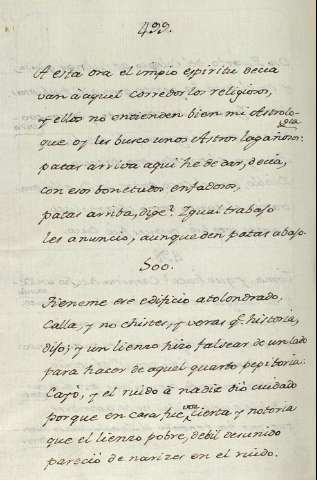 499.
A esta ora el impio espiritu decia
van à aquel corredor los religiosos,
y ellos no entienden bien mi Astrolo-
gia
que oy les busco unos Astros lagañosos:
patas arriva aqui he de dar, decia,
con esos bonetudos enfadosos,
patas arriba, dige? Igual trabajo
les anuncio, aunque den patas abajo.
500.
Tieneme ese edificio atolondrado,
Calla, y no chistes, y veras q.e historia,
dijo; y un lienzo hizo falsear de un lado
para hacer de aquel quarto pepitoria:
Cayò, y el ruido à nadie dio cuidado
porque en casa fue cierta y notoria
que el lienzo pobre, debil desunido
pareciò de narizes en el ruido.